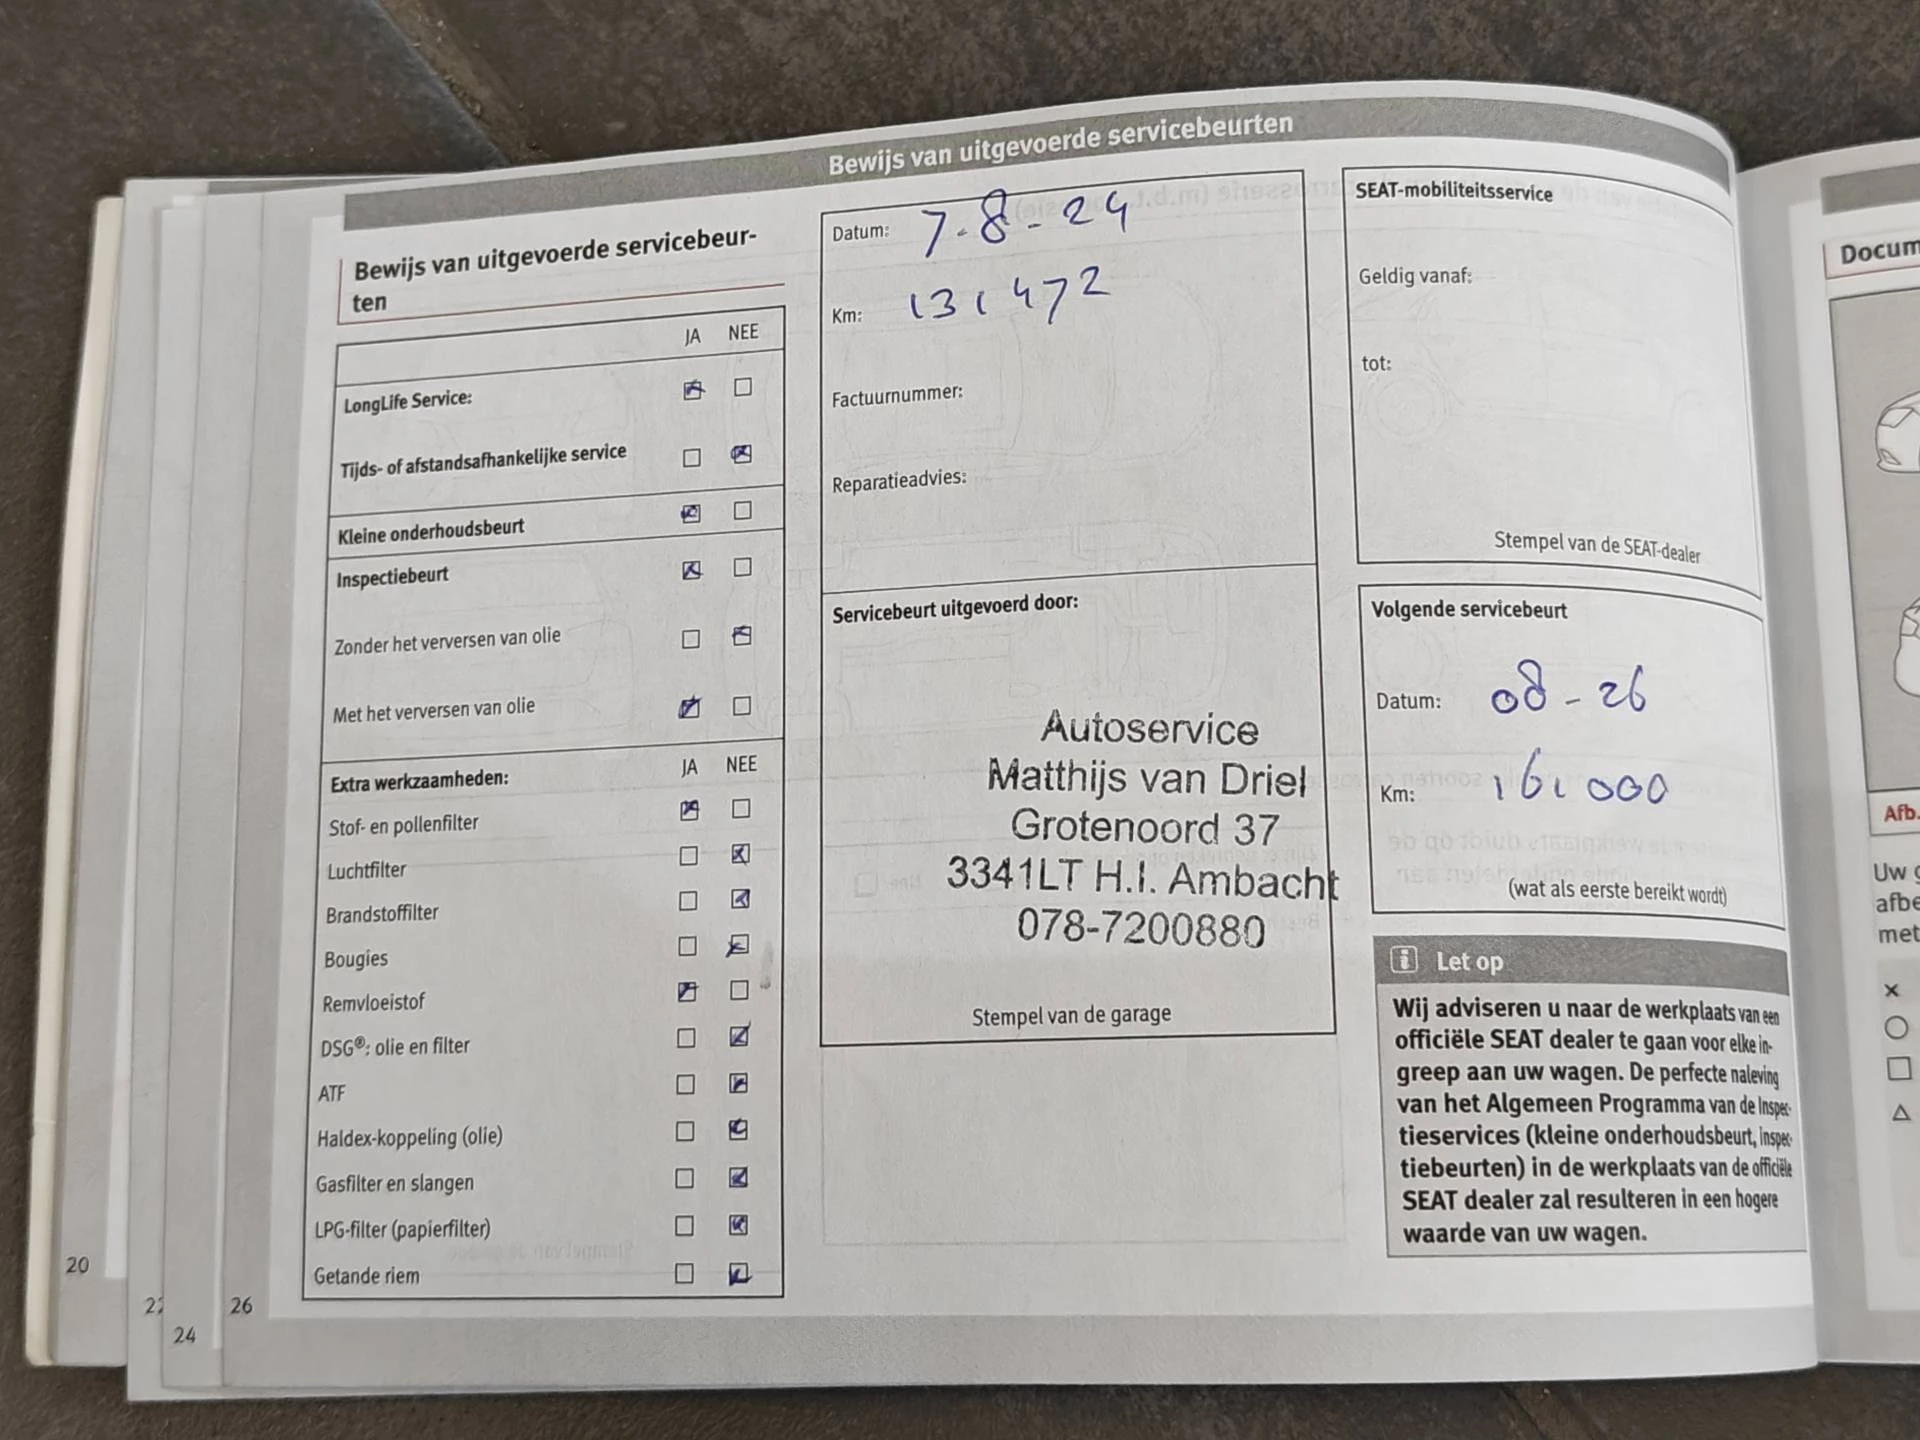 Bewijs van uitgevoerde servicebeurten
Bewijs van uitgevoerde servicebeur-
ten
JA NEE
LongLife Service:
Tijds- of afstandsafhankelijke service
Kleine onderhoudsbeurt
Inspectiebeurt
Zonder het verversen van olie
Met het verversen van olie
Extra werkzaamheden: JA NEE
Stof- en pollenfilter
Luchtfilter
Brandstoffilter
Bougies
Remvloeistof
DSG®: olie en filter
ATF
Haldex-koppeling (olie)
Gasfilter en slangen
LPG-filter (papierfilter)
Getande riem
Datum: 7-8-24
Km: 131472
Factuurnummer:
Reparatieadvies:
Servicebeurt uitgevoerd door:
Autoservice
Matthijs van Driel
Grotenoord 37
3341LT H.I. Ambacht
078-7200880
Stempel van de garage
SEAT-mobiliteitsservice
Geldig vanaf:
tot:
Stempel van de SEAT-dealer
Volgende servicebeurt
Datum: 08-26
Km: 161000
(wat als eerste bereikt wordt)
i Let op
Wij adviseren u naar de werkplaats van een
officiële SEAT dealer te gaan voor elke in-
greep aan uw wagen. De perfecte naleving
van het Algemeen Programma van de Inspec-
tieservices (kleine onderhoudsbeurt, inspec-
tiebeurten) in de werkplaats van de officiële
SEAT dealer zal resulteren in een hogere
waarde van uw wagen.
20
24
26
Docum
Afb.
Uw g
afbe
met